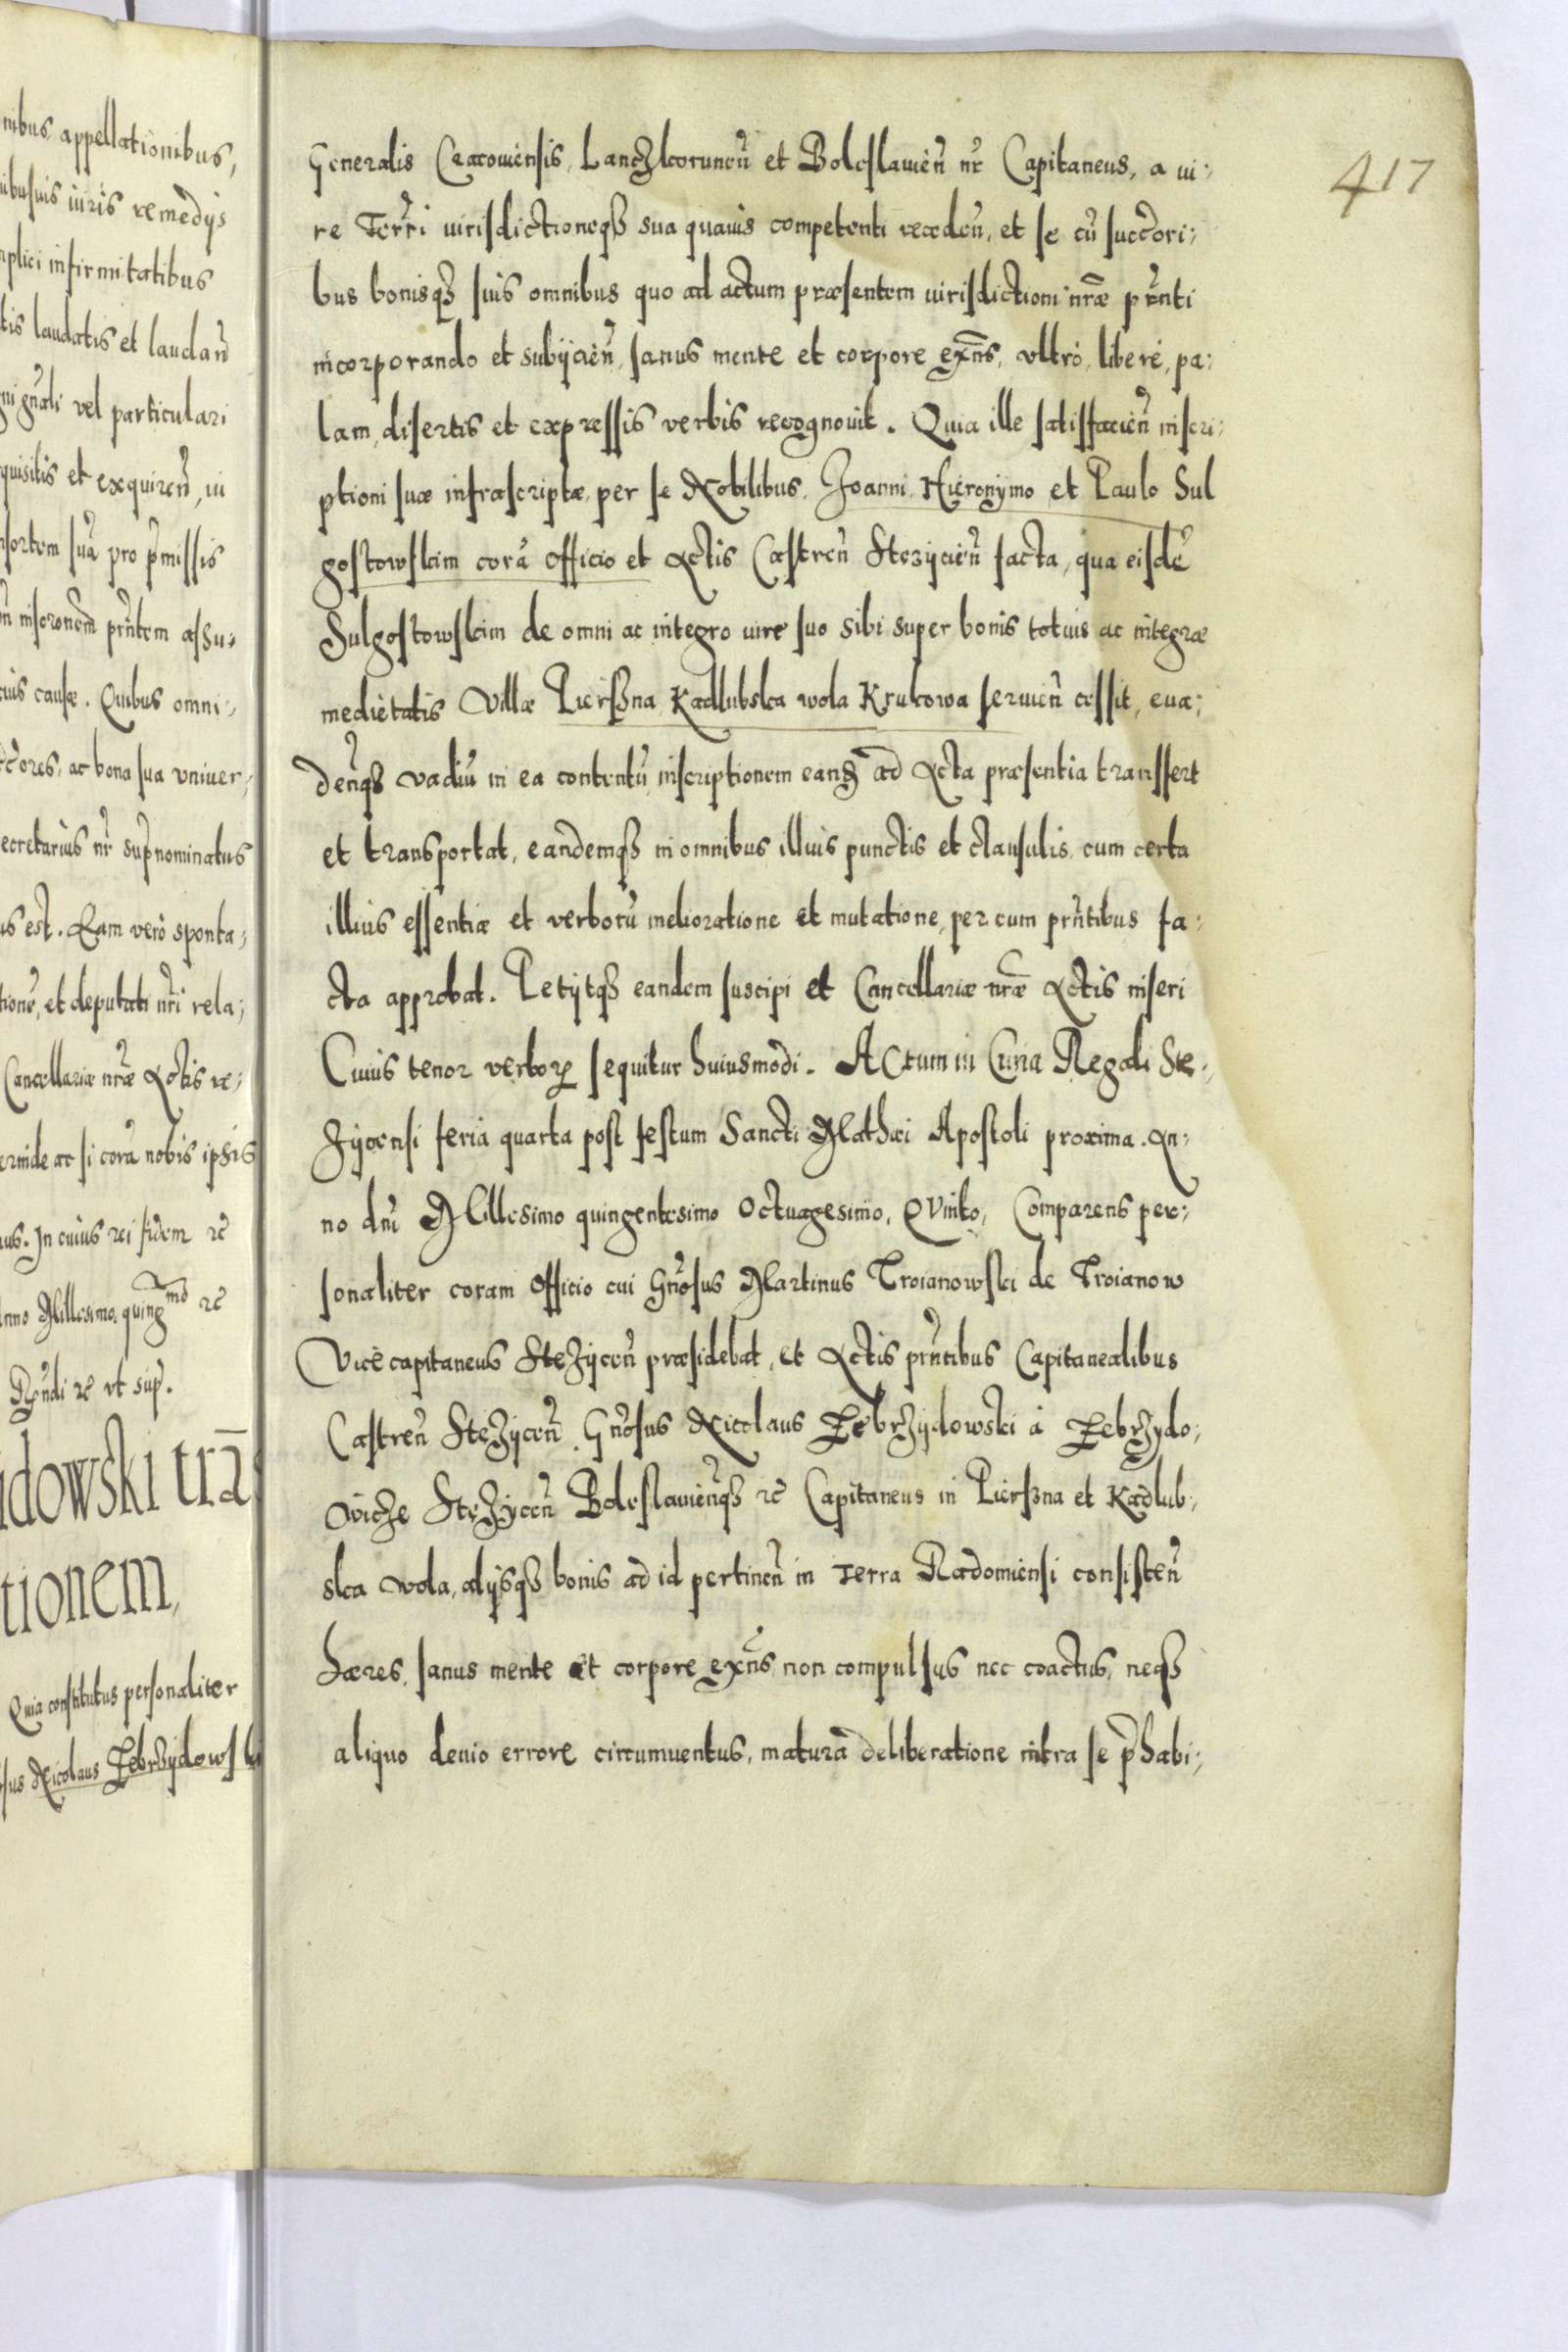 nibus appellationibus,
nibusuis iuris remedijs
mplici infirmitatibus
tis laudatis et laudan̄
gn̄ali vel particulari
quisitis et exquiren̄, in
nsortem suā pro p̄missis
inscronem prn̄tem assu-
cuius causæ. Quibus omni-
ores, ac bona sua vniuer-
ecretarius nr̄ sup̄nominatus
us est. Eam verò sponta-
tione, et deputati nr̄i rela-
Cancellariæ nr̄æ Actis re-
erinde ac si corā nobis ipsis
In cuius rei fidem etc̄
Anno Millesimo quing^mo etc̄
etc̄ vt sup̄.
idowski trā
tionem,
Quia constitutus personaliter
sus Nicolaus Zebrzydowski
417
Generalis Cracouiensis, Lanczkorunen̄ et Boleslauien̄ nr̄ Capitaneus, a iu-
re Terr̄i iurisdictioneqȝ sua quauis competenti receden̄, et se cū succ̄ori-
bus bonisqȝ suis omnibus quo ad actum præsentem iurisdictioni nr̄æ pr̄nti
incorporando et subijcien̄, sanus mente et corpore exn̄s, vltrò, liberè, pa-
lam, disertis et expressis verbis recognouit. Quia ille satisfacien̄ inscri-
ptioni suæ infrascriptæ, per se Nobilibus, Joanni, Hieronymo et Paulo Sul
gostowskim corā officio et Actis Castren̄ Stezijcien̄ facta, qua eisdē
Sulgostowskim de omni ac integro iure suo sibi super bonis totius ac integræ
medietatis Villæ Pierszna Kadlubska wola Krukowa seruien̄ cessit, eua-
den̄qȝ vadiū in ea contentū, inscriptionem eand̄ ad Acta præsentia transfert
et transportat, eandemqȝ in omnibus illius punctis et clausulis, cum certa
illius essentiæ et verborū melioratione et mutatione, per eum prn̄tibus fa-
cta approbat. Petijtqȝ eandem suscipi et Cancellariæ nr̄æ Actis inseri
Cuius tenor verborꝝ sequitur huiusmodi. Actum in Curia Regali Ste-
zijcensi feria quarta post festum Sancti Mathæi Apostoli proxima. An-
no dn̄i Millesimo quingentesimo Octuagesimo, Qvinto, Comparens per-
sonaliter coram officio cui Gn̄osus Martinus Troianowski de Troianow
Vicecapitaneus Stezijcen̄ præsidebat, et Actis prn̄tibus Capitanealibus
Castren̄ Stezijcen̄, Gn̄osus Nicolaus Zebrzijdowski à Zebrzydo-
wicze Stezijcen̄ Boleslauien̄qȝ etc̄ Capitaneus in Pierszna et Kadlub-
ska wola, alijsqȝ bonis ad id pertinen̄ in Terra Radomiensi consisten̄
hæres, sanus mente et corpore exn̄s, non compulsus nec coactus, neqȝ
aliquo deuio errore circumuentus, maturā deliberatione intra se p̄habi-